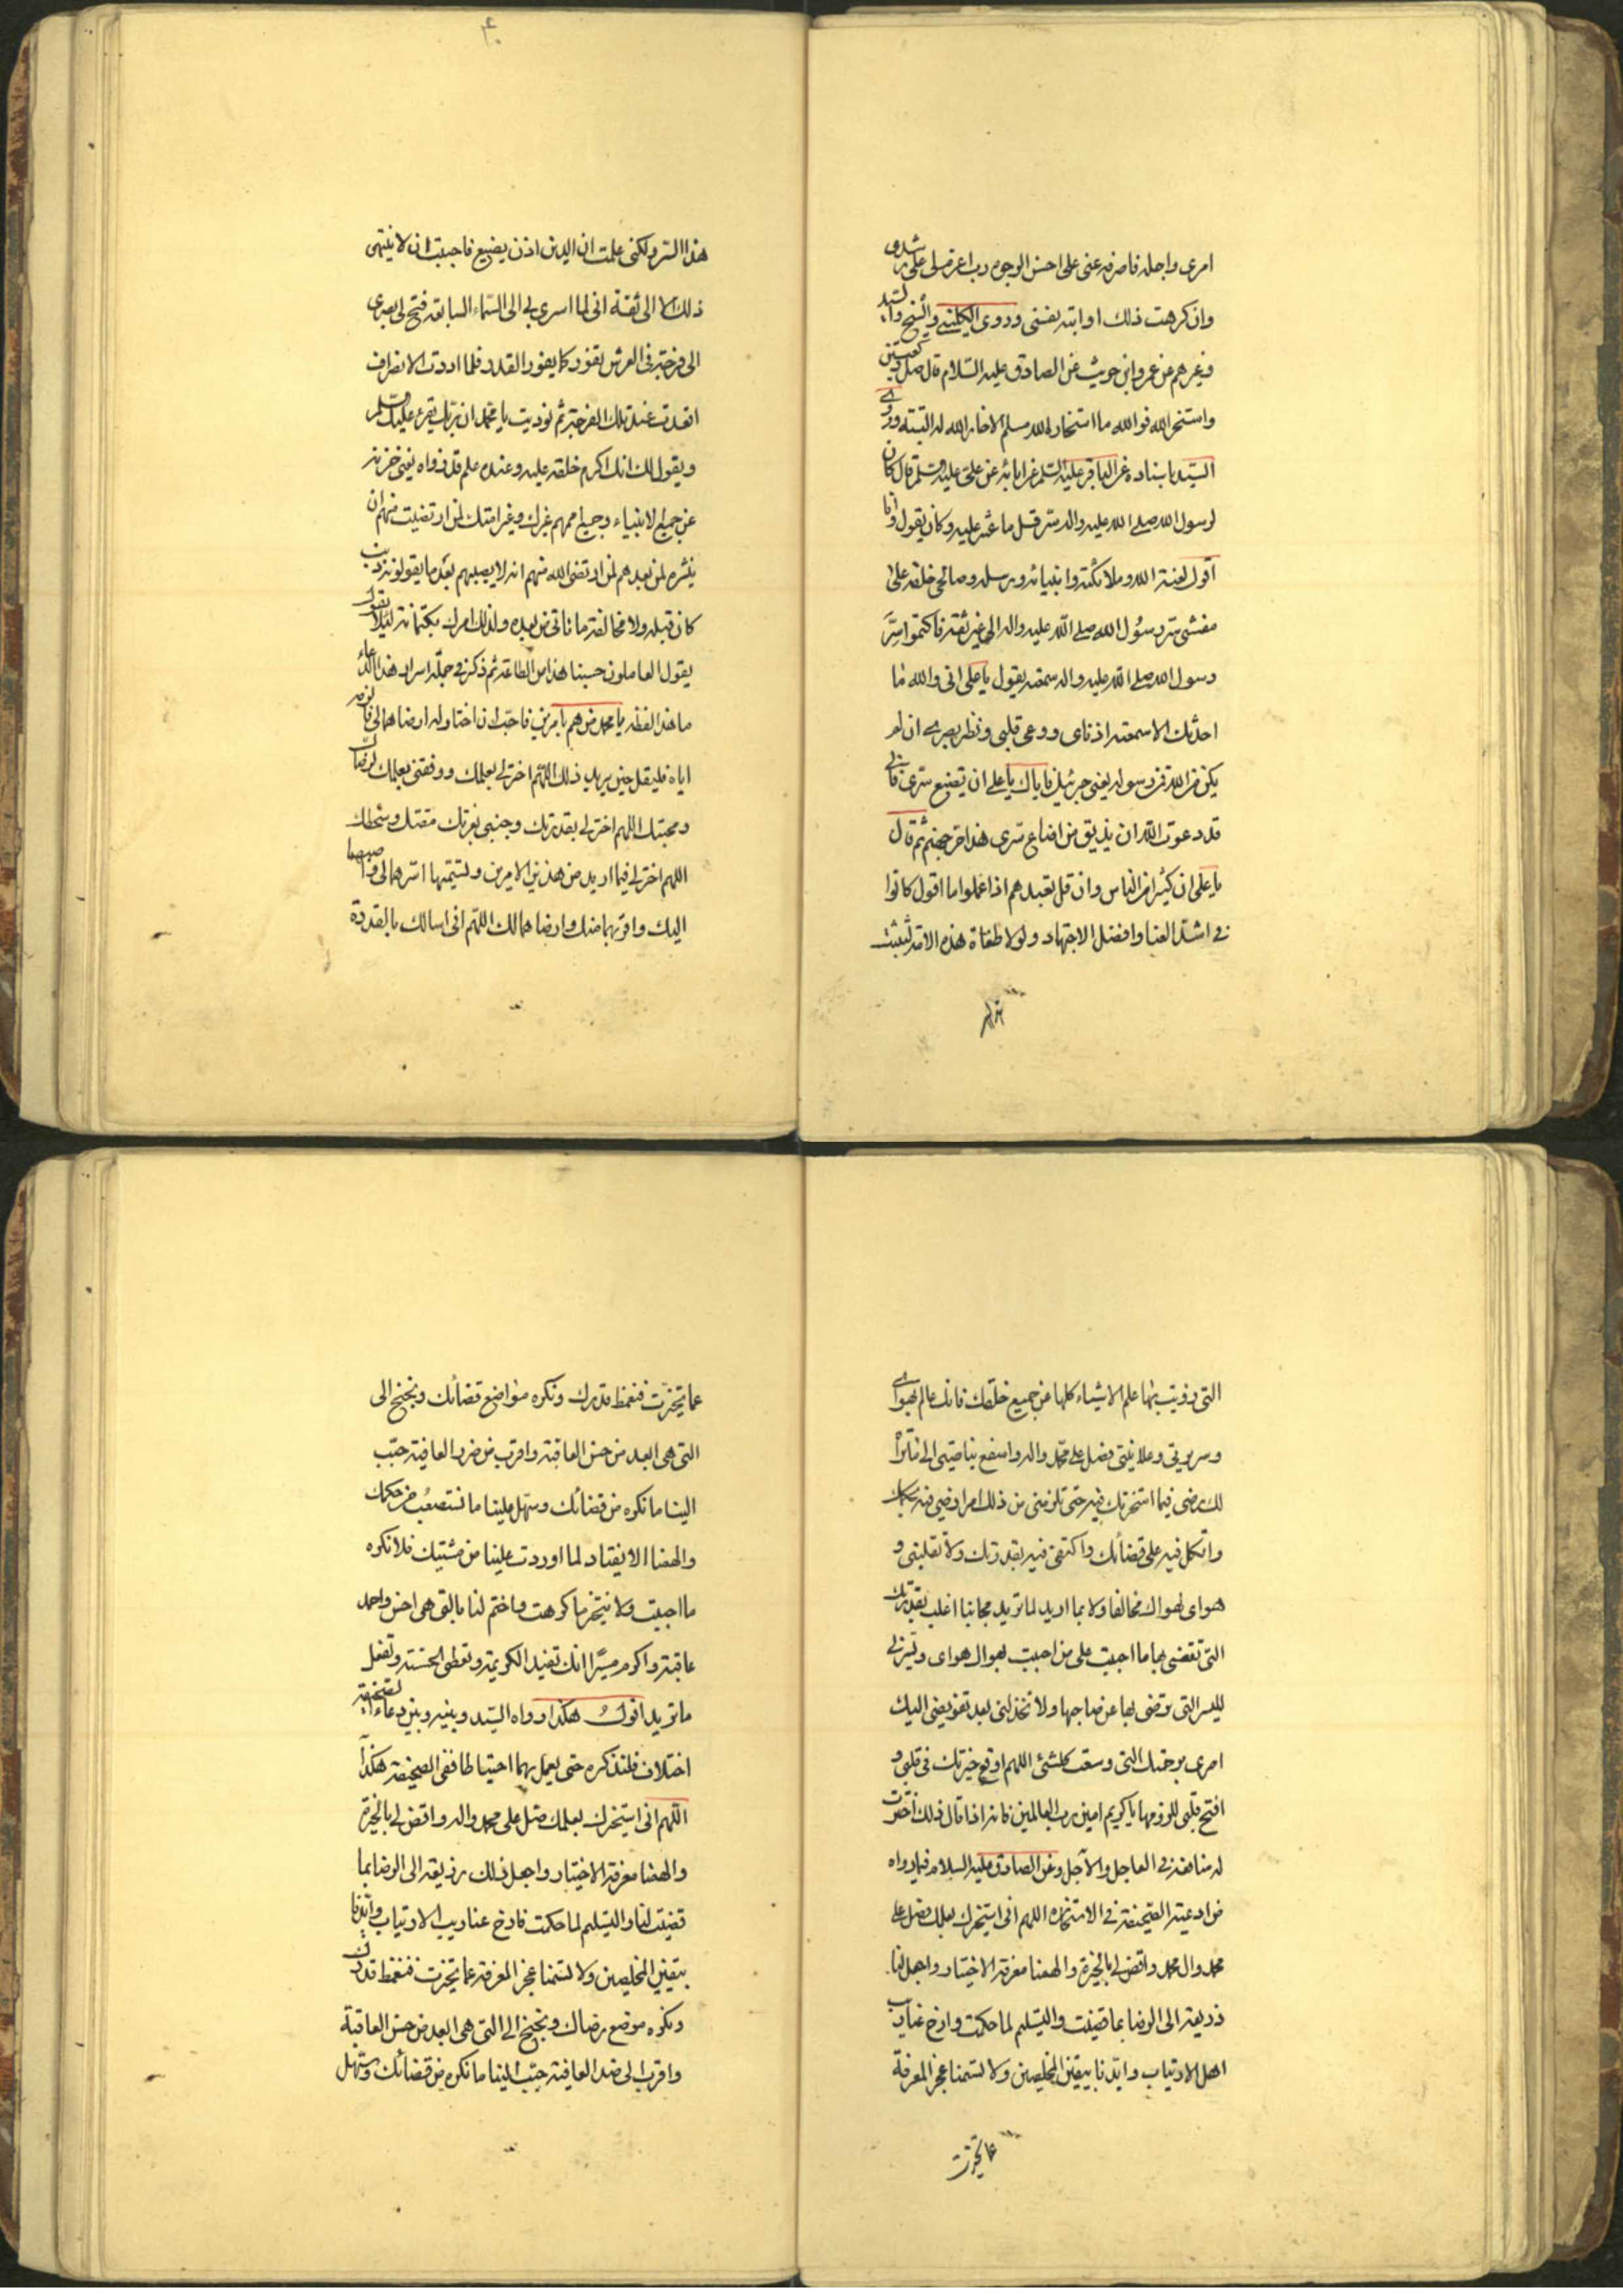 امری واجله فاصرفه عنی علی احسن الوجوه رب اعزم لی علی رشدی
وان کرهت ذلك او ابته نفسی وروی الکلینی والشیخ والسید
وغیرهم عن عمرو ابن حریث عن الصادق علیه السلام قال صل رکعتین
واستخر الله فوالله ما استخار الله مسلم الا خار الله له البتة وروی
السید باسناده عن الباقر علیه السلم عن ابائه عن علی علیه وسلم قال کان
لرسول الله صلی الله علیه واله سر قل ما عثر علیه وکان یقول وانا
اقول لعنة الله وملائکته وانبیائه ورسله وصالحی خلقه علی
مفشی سر رسول الله صلی الله علیه واله الی غیر ثقة فاکتموا سر
رسول الله صلی الله علیه واله سمعته یقول یا علی انی والله ما
احدثك الا سمعته اذنای ووعی قلبی ونظر بصری ان لم
یکن من الله فمن رسوله یعنی جبرئیل فایاك یا علی ان تضیع سری فانی
قد دعوت الله ان یذیق من اضاع سری هذا حر جهنم ثم قال
یا علی ان کثیرا من الناس وان قل تعبدهم اذا عملوا ما اقول کانوا
فی اشد العنا وافضل الاجتهاد ولولا طغاة هذه الامة لبثثت
هذا السر
هذا السر ولکنی علمت ان الدین اذن یضیع فاحببت ان لا ینتهی
ذلك الا الی ثقة انی لما اسری بی الی السماء السابعة فتح لی بصری
الی فرجة فی العرش تفور کما یفور القدر فلما اردت الانصراف
اقعدت عند تلك الفرجة ثم نودیت یا محمد ان ربك یقرء علیك السلم
ویقول لك انك اکرم خلقه علیه وعنده علم قد زواه یعنی خزنه
عن جمیع الانبیاء وجمیع اممهم غیرك وغیر امتك لمن ارتضیت منهم ان
ینشره لمن بعدهم لمن ارتضی الله منهم انه لا یصیبهم بعد ما یقولونه ذنب
کان قبله ولا مخافة ما یاتی من بعده ولذلك امرك بکتمانه لئلا یقول
یقول العاملون حسبنا هذا من الطاعة ثم ذکر فی جملة اسرار هذا الدعاء
ما هذا لفظه یا محمد من هم بامرین فاحب ان اختار له ارضاهما لی فالزمه
ایاه فلیقل حین یرید ذلك اللهم اختر لی بعلمك ووفقنی بعلمك لرضاك
ومحبتك اللهم اختر لی بقدرتك وجنبنی بعزتك مقتك وسخطك
اللهم اختر لی فیما ارید من هذین الامرین وتسمیهما اسرهما لی واحبهما
الیك واقربهما منك وارضاهما لك اللهم انی اسالك بالقدرة
التی زویت بها علم الاشیاء کلها عن جمیع خلقك فانك عالم بهوای
وسریرتی وعلانیتی فصل علی محمد واله واسفع بناصیتی الی ما تراه
لك رضی فیما استخرتك فیه حتی تلزمنی من ذلك امرا ارضی فیه بحکمك
واتکل فیه علی قضائك واکتفی فیه بقدرتك ولا تقلبنی و
هوای لهواك مخالفا ولا بما ارید لما ترید مجانبا اغلب بقدرتك
التی تقضی بها ما احببت علی من احببت بهواك هوای ویسرنی
للیسری التی ترضی بها عن صاحبها ولا تخذلنی بعد تفویضی الیك
امری برحمتك التی وسعت کلشئ اللهم اوقع خیرتك فی قلبی و
افتح قلبی للزومها یا کریم امین رب العالمین فانه اذا قال ذلك اخترت
له منافعه فی العاجل والآجل وعن الصادق علیه السلام فیما رواه
من ادعیة الصحیفة فی الاستخاره اللهم انی استخیرك بعلمك فصل علی
محمد وال محمد واقض لی بالخیرة والهمنا معرفة الاختیار واجعل لنا
ذریعة الی الرضا بما قضیت والتسلیم لما حکمت وازح عنا ریب
اهل الارتیاب وایدنا بیقین المخلصین ولا تسمنا عجز المعرفة
عما تخیرت
عما تخیرت فنغمط قدرك ونکره مواضع قضائك ونجنح الی
التی هی ابعد من حسن العاقبة واقرب من ضد العافیة حبب
الینا ما نکره من قضائك وسهل علینا ما نستصعب من حکمك
والهمنا الانقیاد لما اوردت علینا من مشیتك فلا نکره
ما احببت ولا نتخیر ما کرهت واختم لنا بالتی هی احسن واحمد
عاقبة واکرم مصیرا انك تفید الکریمة وتعطی الحسنة وتفعل
ما ترید اقول هکذا رواه السید وبینه وبین دعاء الصحیفة
اختلاف فلنذکره حتی یعمل بهما احتیاطا ففی الصحیفة هکذا
اللهم انی استخیرك بعلمك صل علی محمد واله واقض لی بالخیرة
والهمنا معرفة الاختیار واجعل ذلك ذریعة الی الرضا بما
قضیت لنا والتسلیم لما حکمت فازح عنا ریب الارتیاب وایدنا
بیقین المخلصین ولا تسمنا عجز المعرفة عما تخیرت فنغمط قدرك
ونکره موضع رضاك ونجنح الی التی هی ابعد من حسن العاقبة
واقرب الی ضد العافیة حبب الینا ما نکره من قضائك وسهل